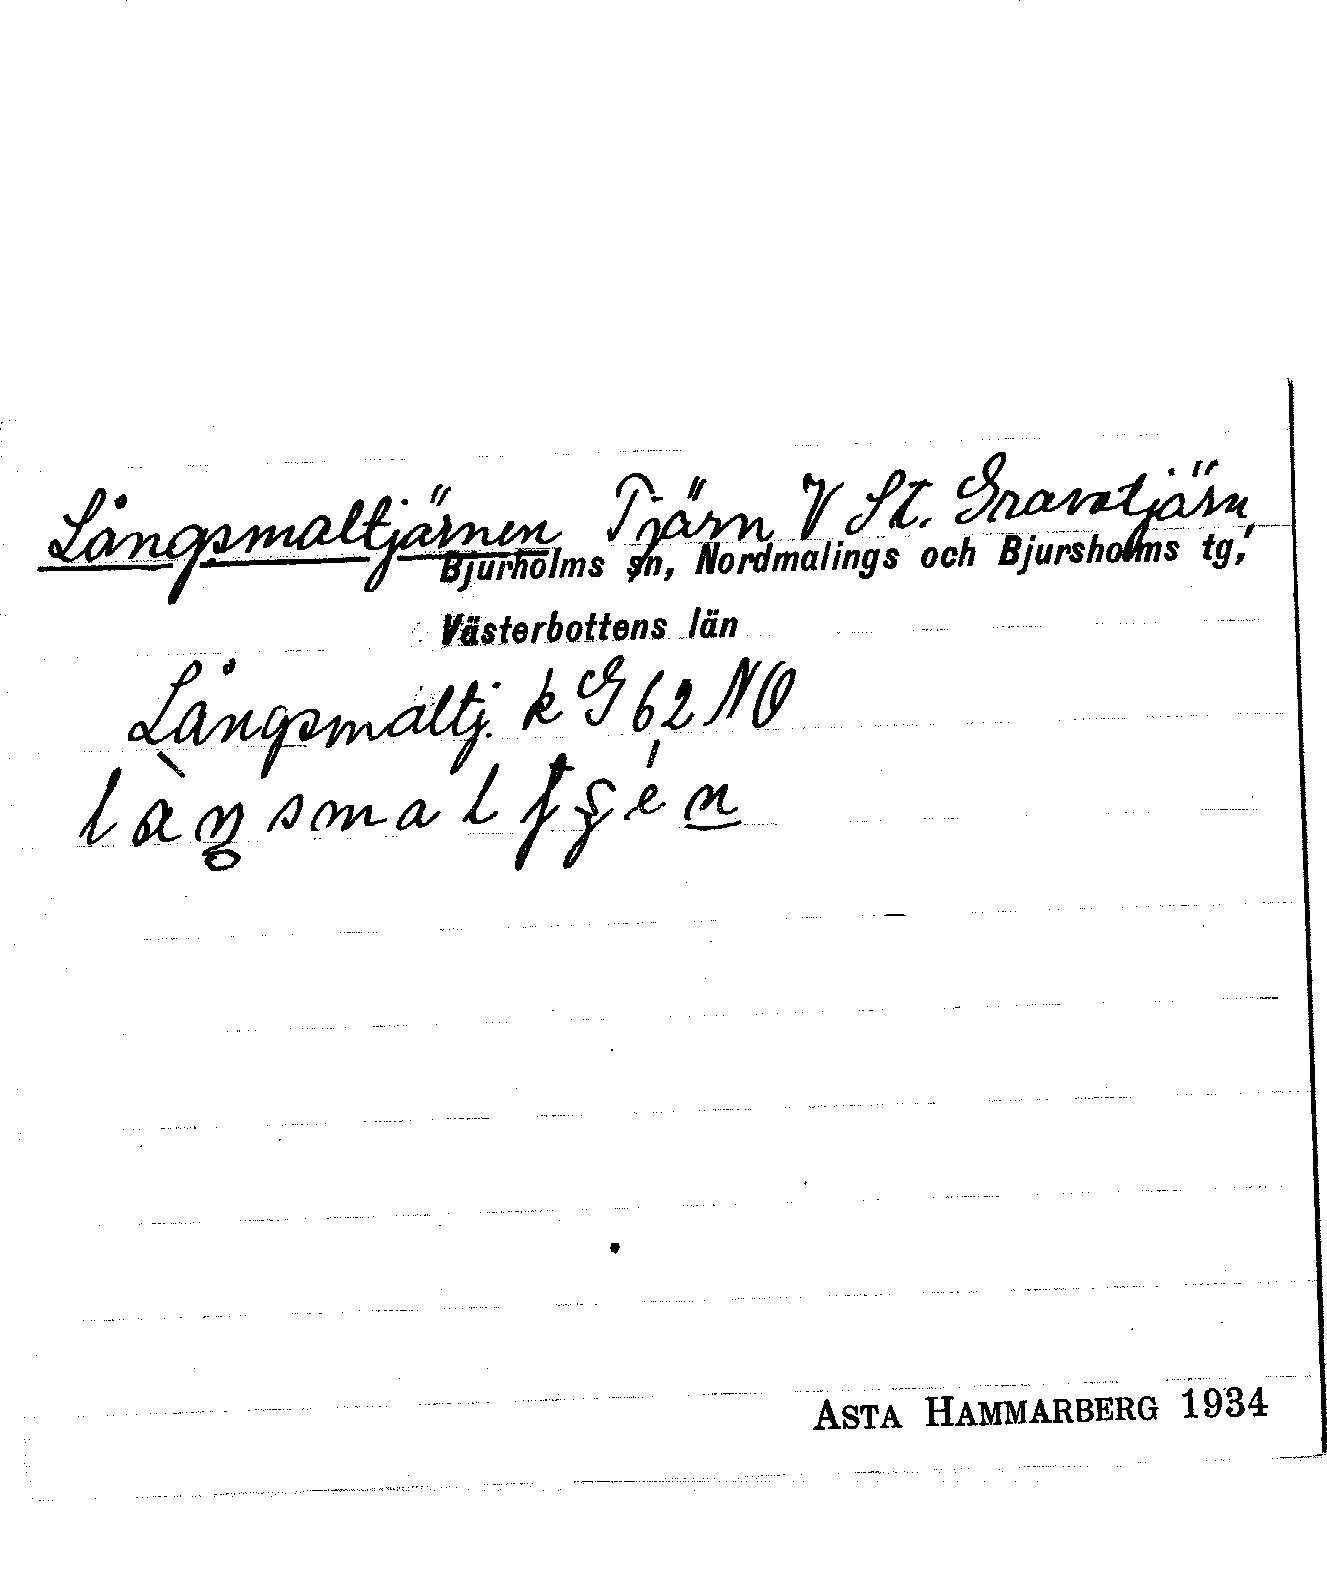 Långsmaltjärnen Tjärn V St. Gravatjärn,
Bjurholms sn, Nordmalings och Bjursholms tg,
Västerbottens län
Långsmaltj. k G 62 NO
ASTA HAMMARBERG 1934